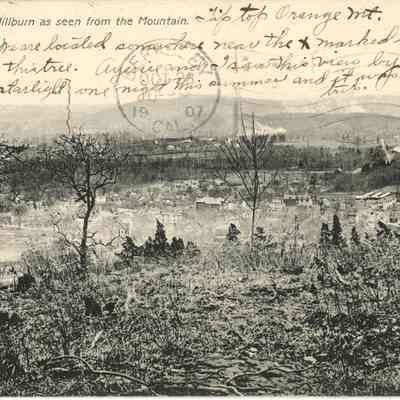 Millburn as seen from the Mountain.
Tip top Orange Mt.
are located somewhere near the x marked
this tree. and I saw this view by
starlight one night this summer and it was
19 07
CAL